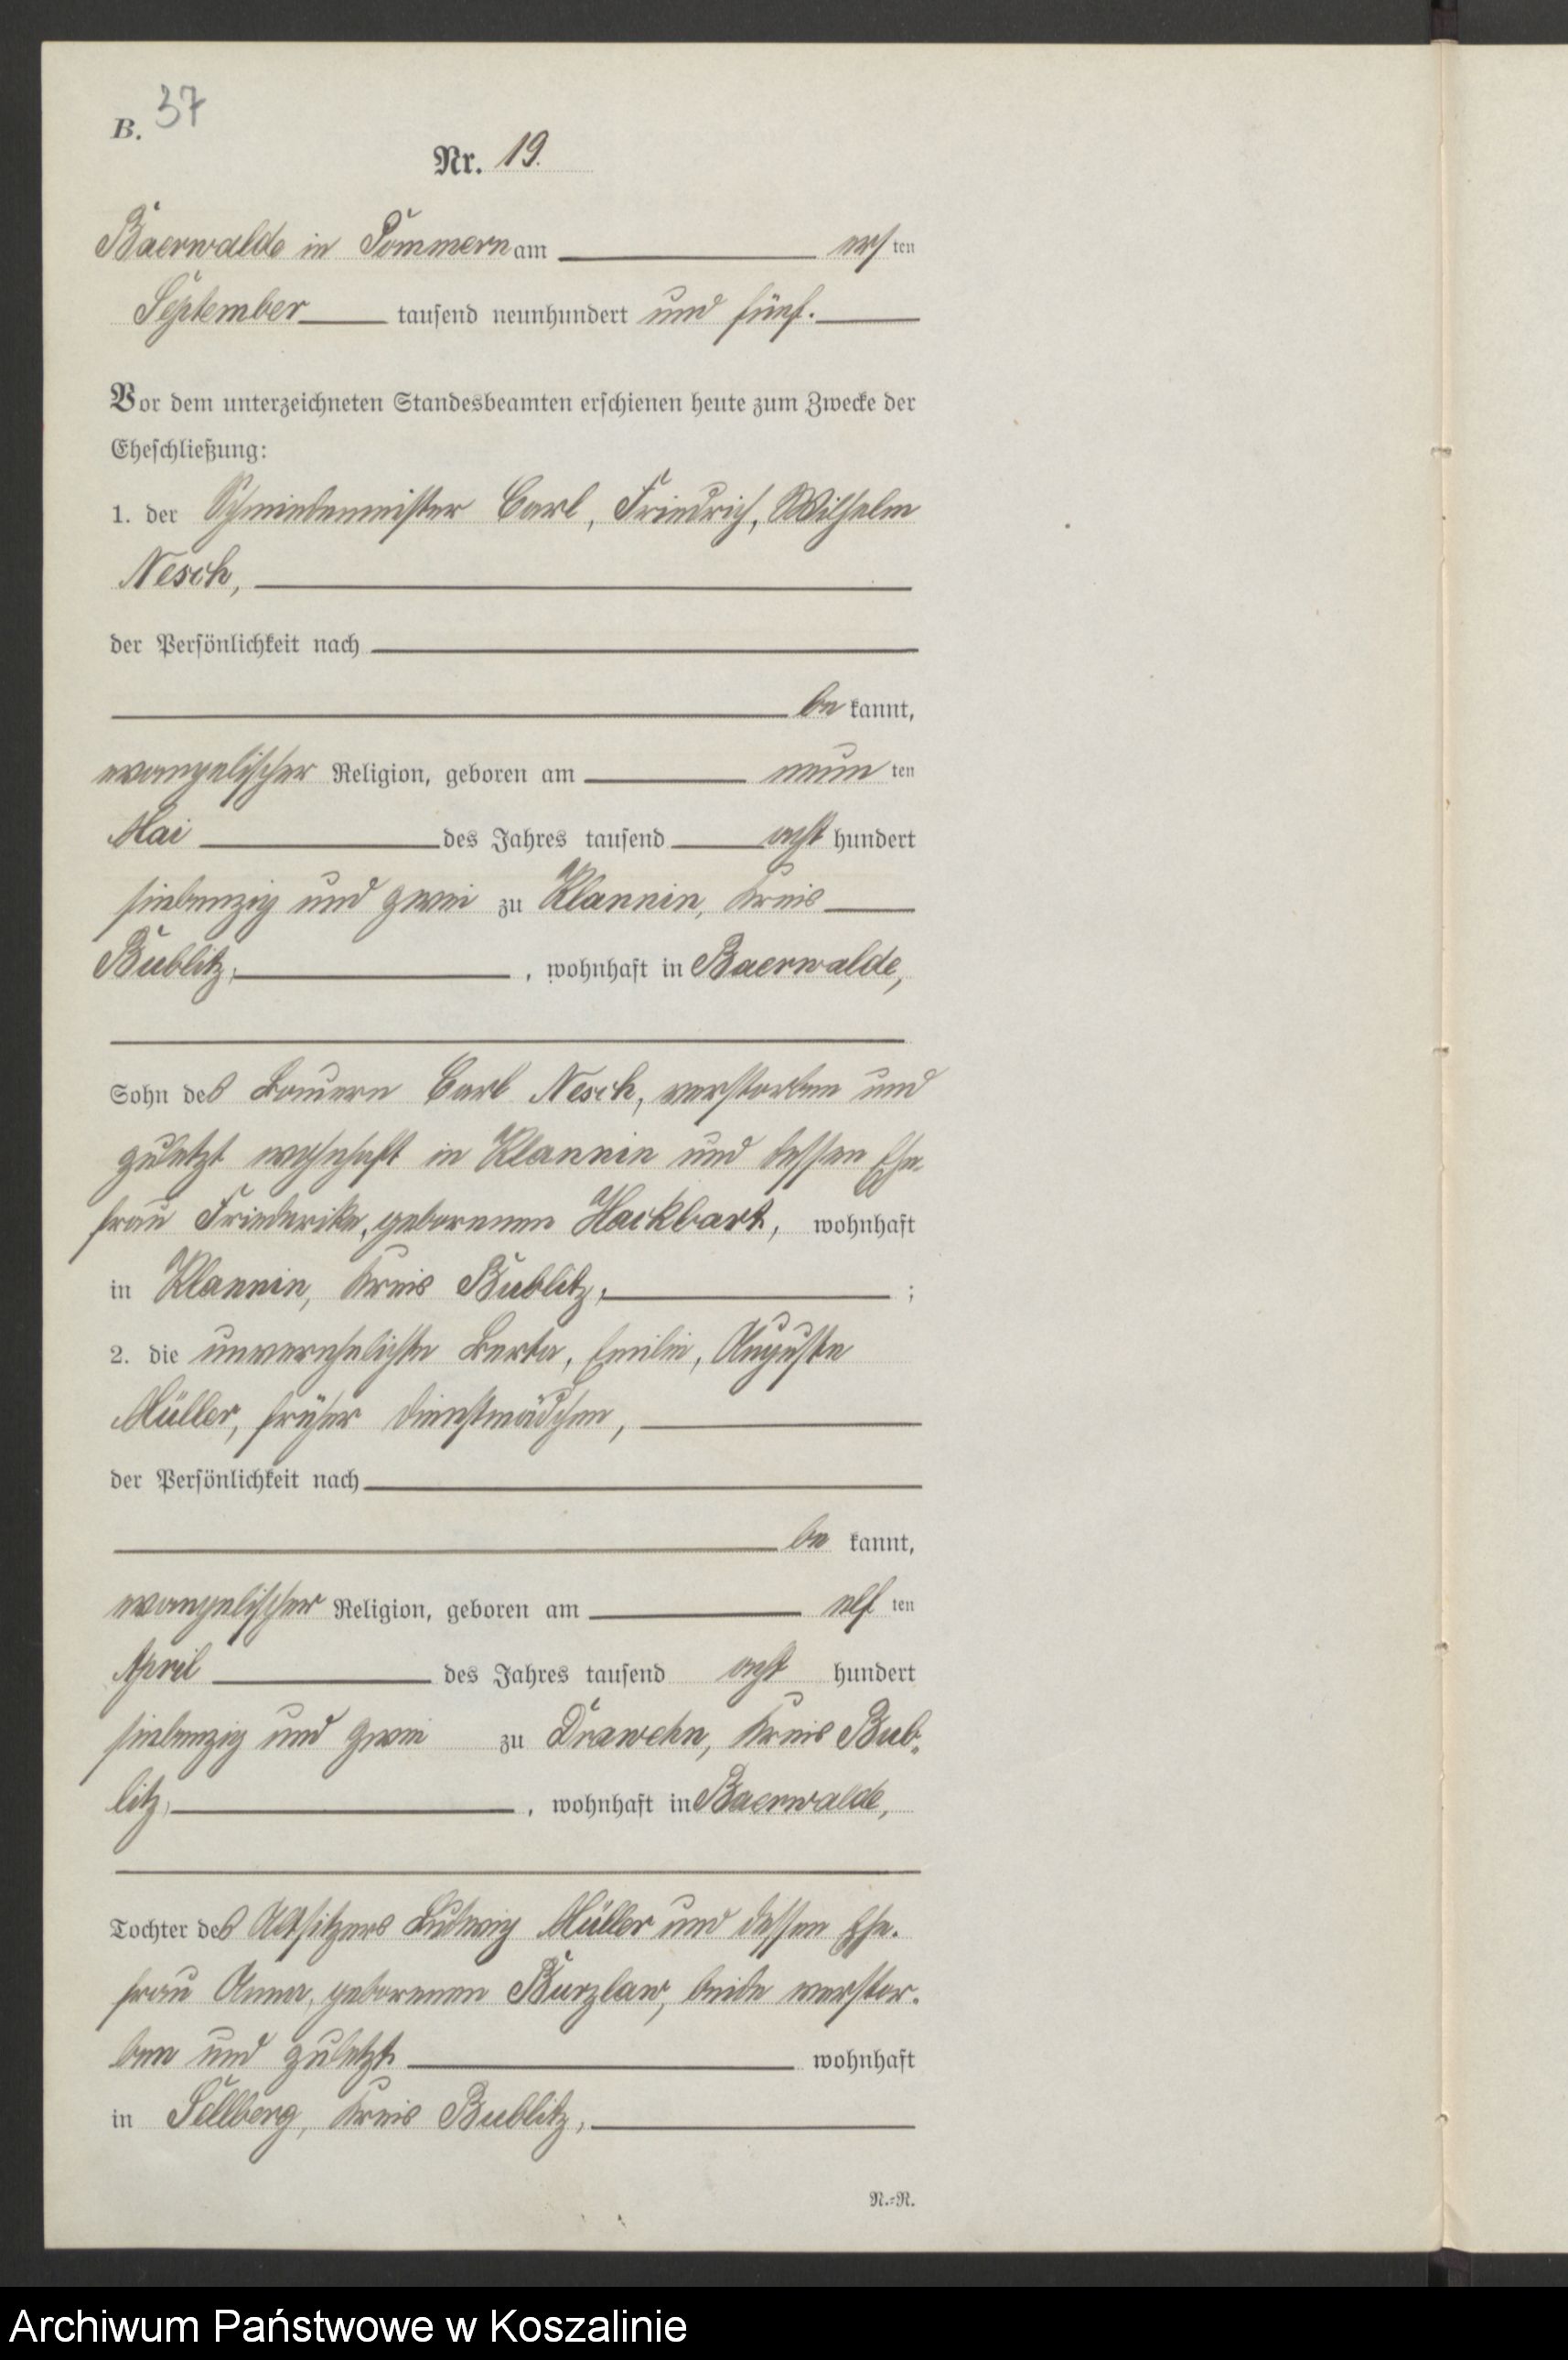 B. 37
Nr. 19.
Baerwalde in Pommern am ersten
September tausend neunhundert und fünf.
Vor dem unterzeichneten Standesbeamten erschienen heute zum Zwecke der
Eheschließung:
1. der Schmiedemeister Carl, Friedrich, Wilhelm
Nesch,
der Persönlichkeit nach
be kannt,
evangelischer Religion, geboren am neun ten
Mai des Jahres tausend acht hundert
siebenzig und zwei zu Klannin, Kreis
Bublitz, , wohnhaft in Baerwalde,
Sohn des Bauern Carl Nesch, verstorben und
zuletzt wohnhaft in Klannin und dessen Ehe
frau Friederike, geborenen Hackbart, wohnhaft
in Klannin, Kreis Bublitz, ;
2. die unverehelichte Berta, Emilie, Auguste
Müller, früher Dienstmädchen,
der Persönlichkeit nach
be kannt,
evangelischer Religion, geboren am elf ten
April des Jahres tausend acht hundert
siebenzig und zwei zu Drawehn, Kreis Bub-
litz, , wohnhaft in Baerwalde,
Tochter des Altsitzers Ludwig Müller und dessen Ehe-
frau Anna, geborenen Burzlaw, beide verstor-
ben und zuletzt wohnhaft
in Sellberg, Kreis Bublitz,
N.=R.
Archiwum Państwowe w Koszalinie